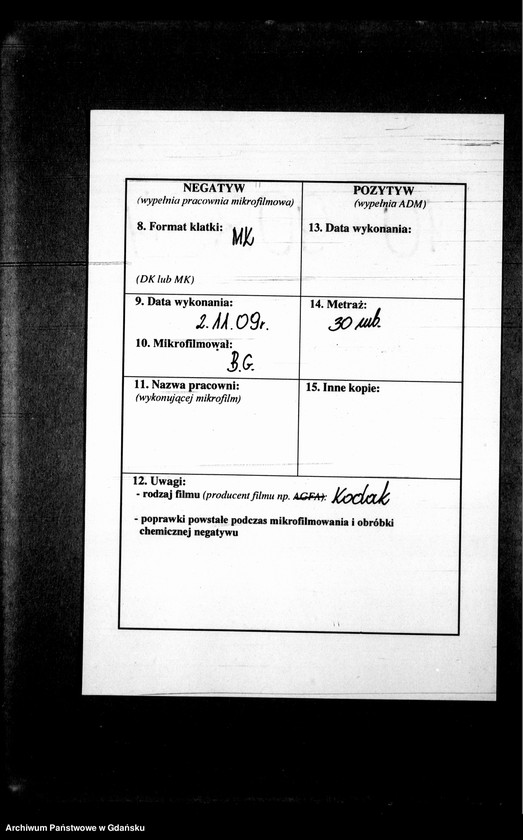 NEGATYW
(wypełnia pracownia mikrofilmowa)
8. Format klatki:
MK
(DK lub MK)
9. Data wykonania:
2.11.09r.
10. Mikrofilmował:
B.G.
11. Nazwa pracowni:
(wykonującej mikrofilm)
POZYTYW
(wypełnia ADM)
13. Data wykonania:
14. Metraż:
30 mb.
15. Inne kopie:
12. Uwagi:
- rodzaj filmu (producent filmu np. AGFA): Kodak
- poprawki powstałe podczas mikrofilmowania i obróbki
chemicznej negatywu
Archiwum Państwowe w Gdańsku